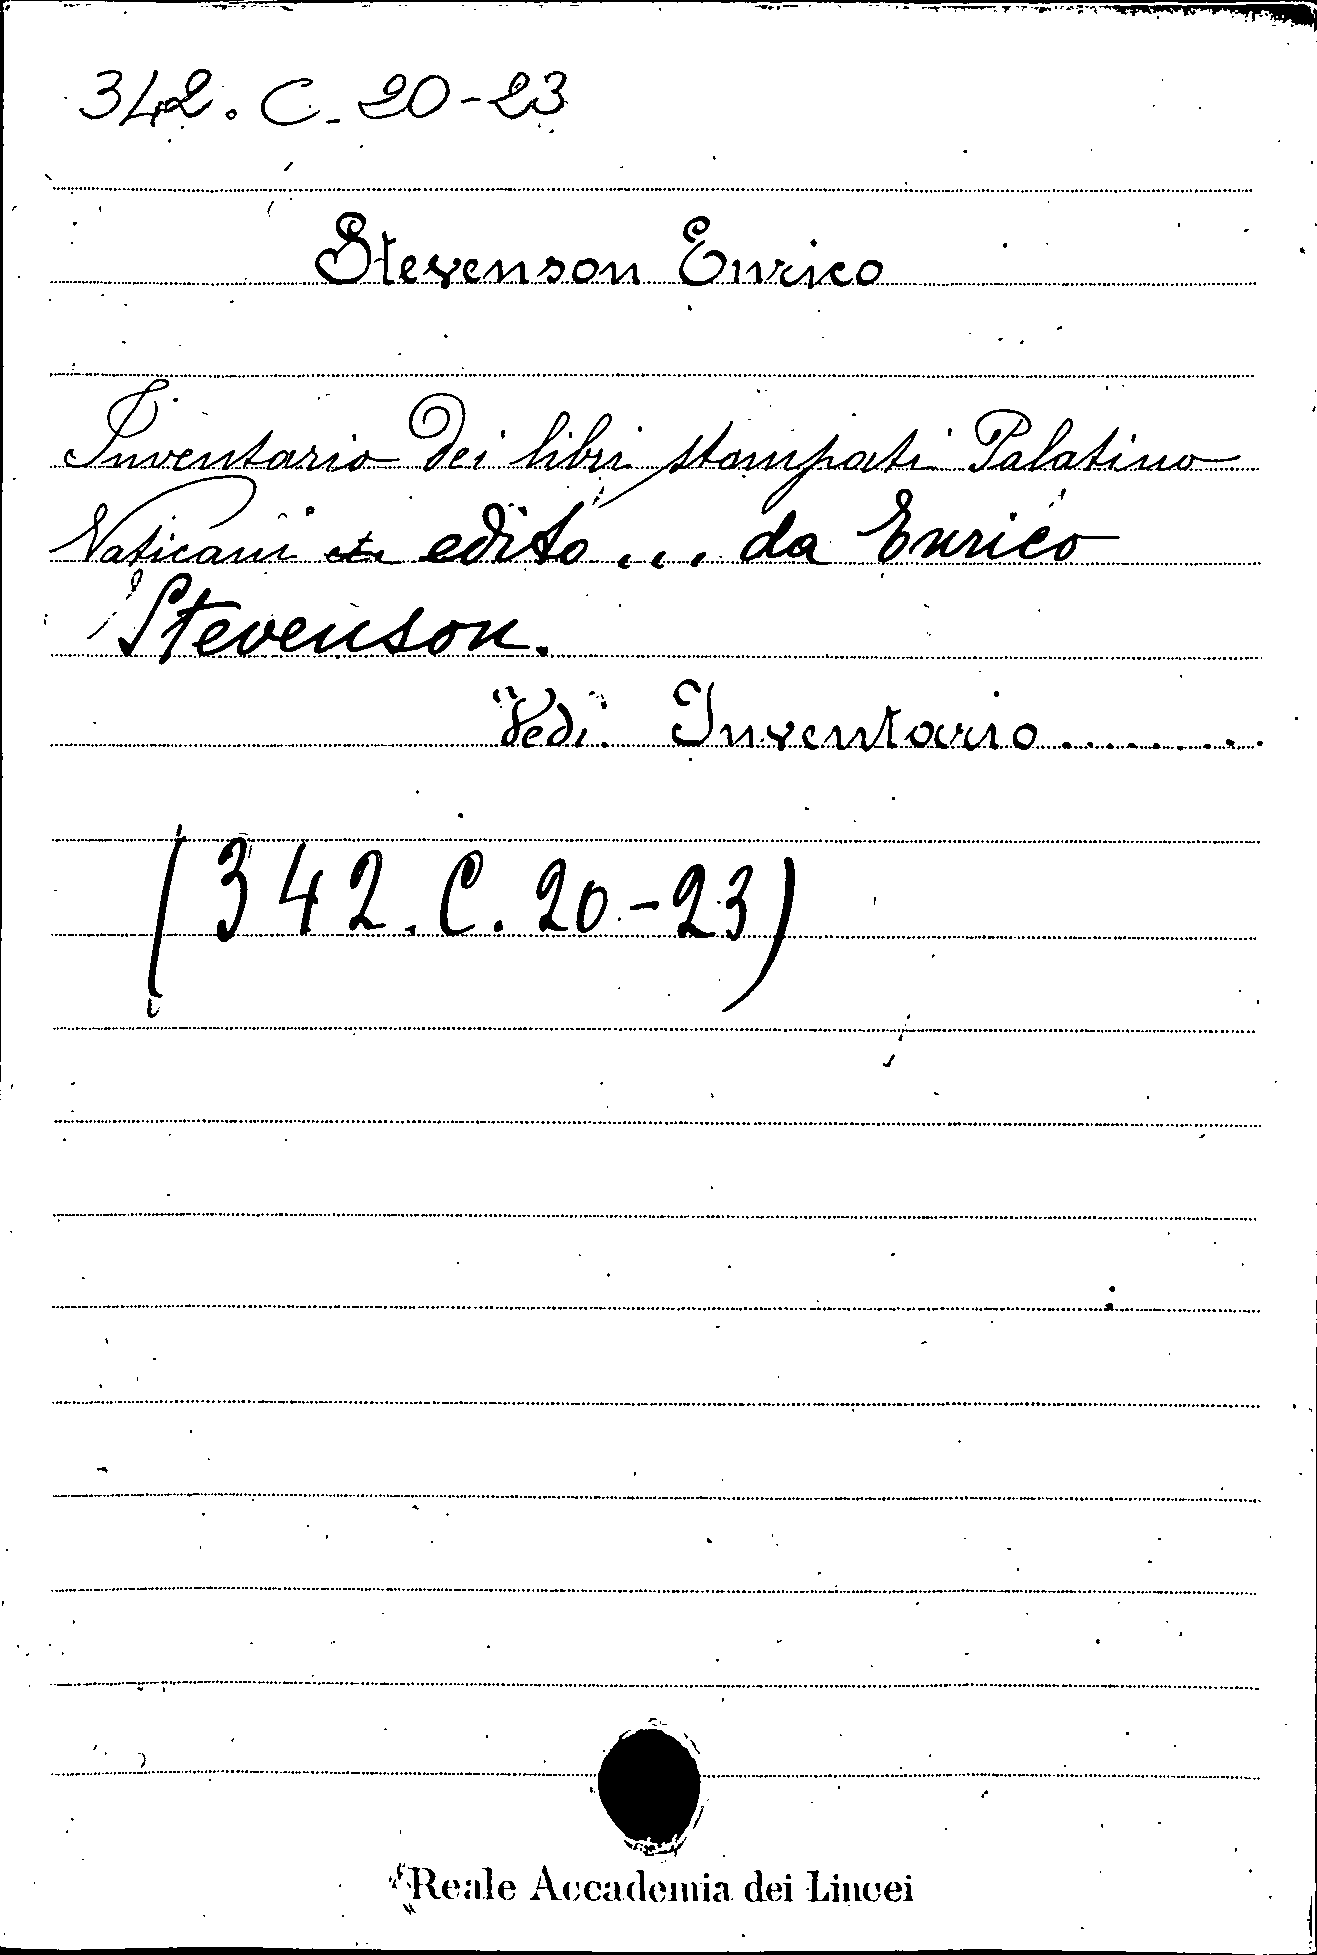 342. C. 20-23
Stevenson Enrico
Inventario dei libri stampati Palatino
Vaticani edito ... da Enrico
Stevenson.
Vedi Inventario .........
(342. C. 20-23)
Reale Accademia dei Lincei